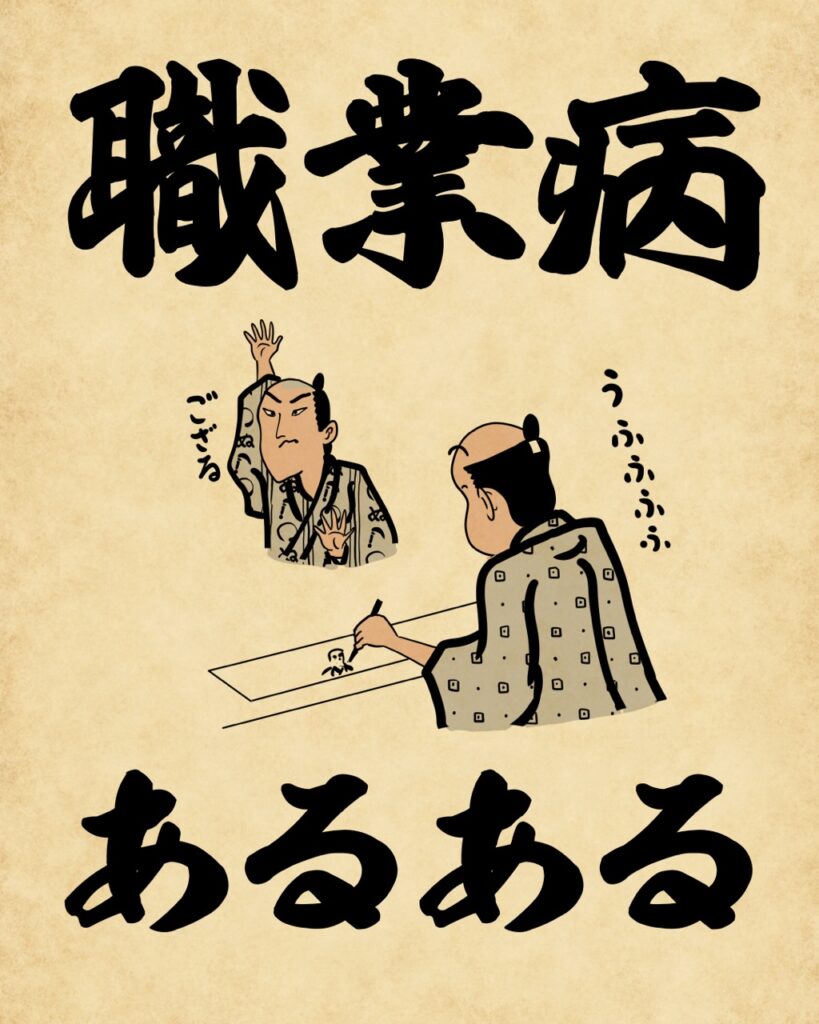 職業病
ござる
うふふふふ
あるある